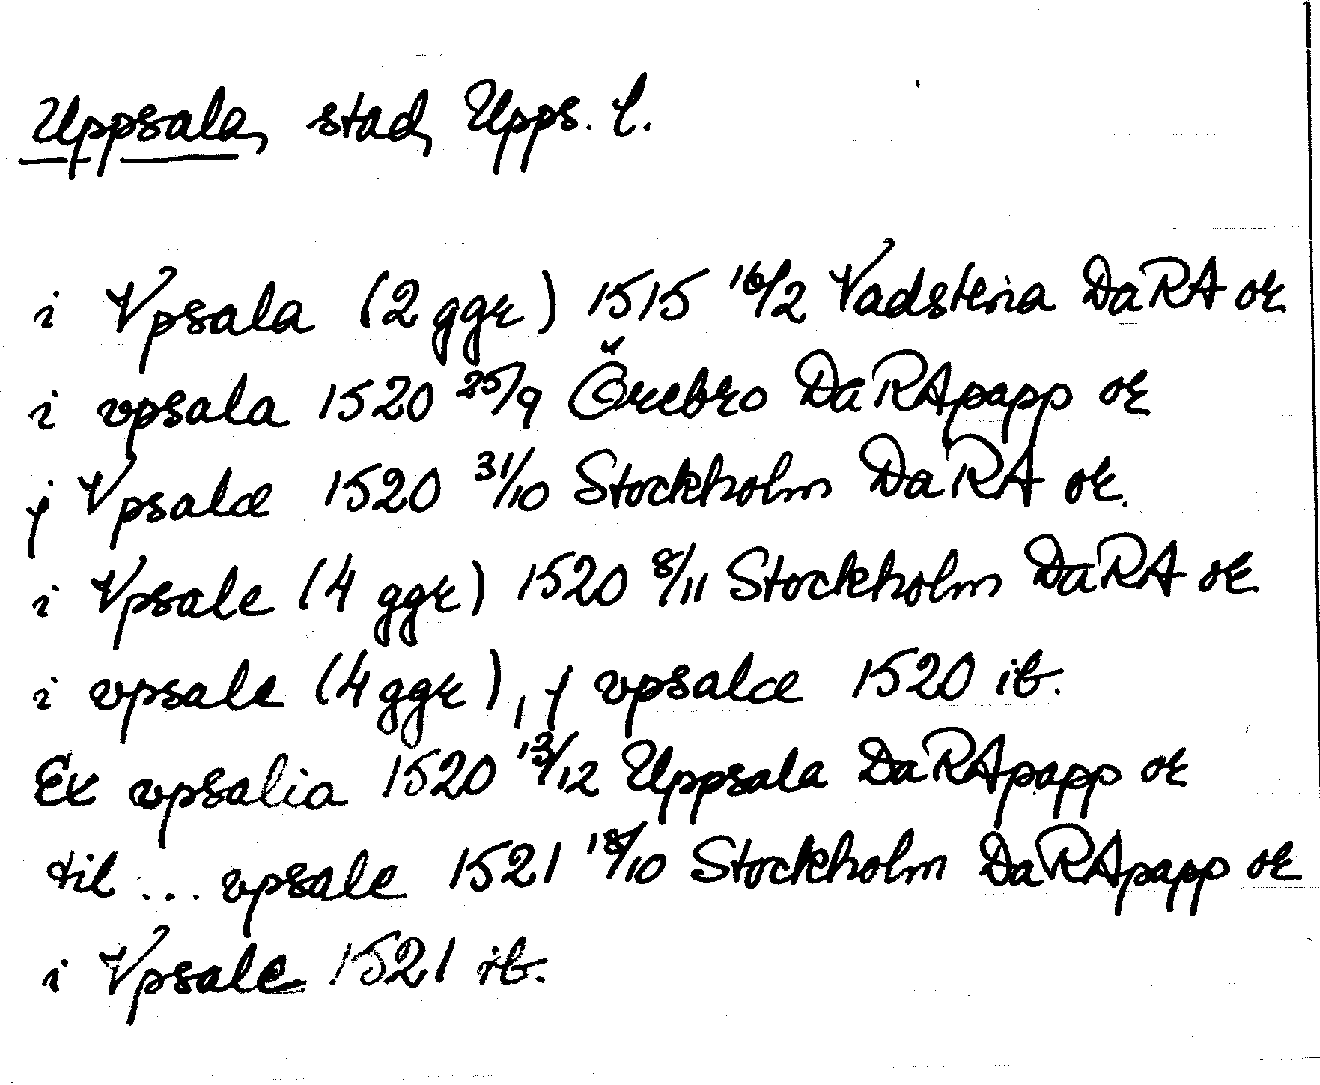 Uppsala, stad, Upps. l.
i Vpsala (2 ggr) 1515 16/2 Vadstena DaRA or
i vpsala 1520 25/9 Örebro DaRApapp or
j Vpsalæ 1520 31/10 Stockholm DaRA or.
i Vpsale (4 ggr) 1520 8/11 Stockholm DaRA or.
i vpsale (4 ggr), j vpsalæ 1520 ib.
Ex vpsalia 1520 13/12 Uppsala DaRApapp or
til ... vpsale 1521 18/10 Stockholm DaRApapp or
i Vpsale 1521 ib.